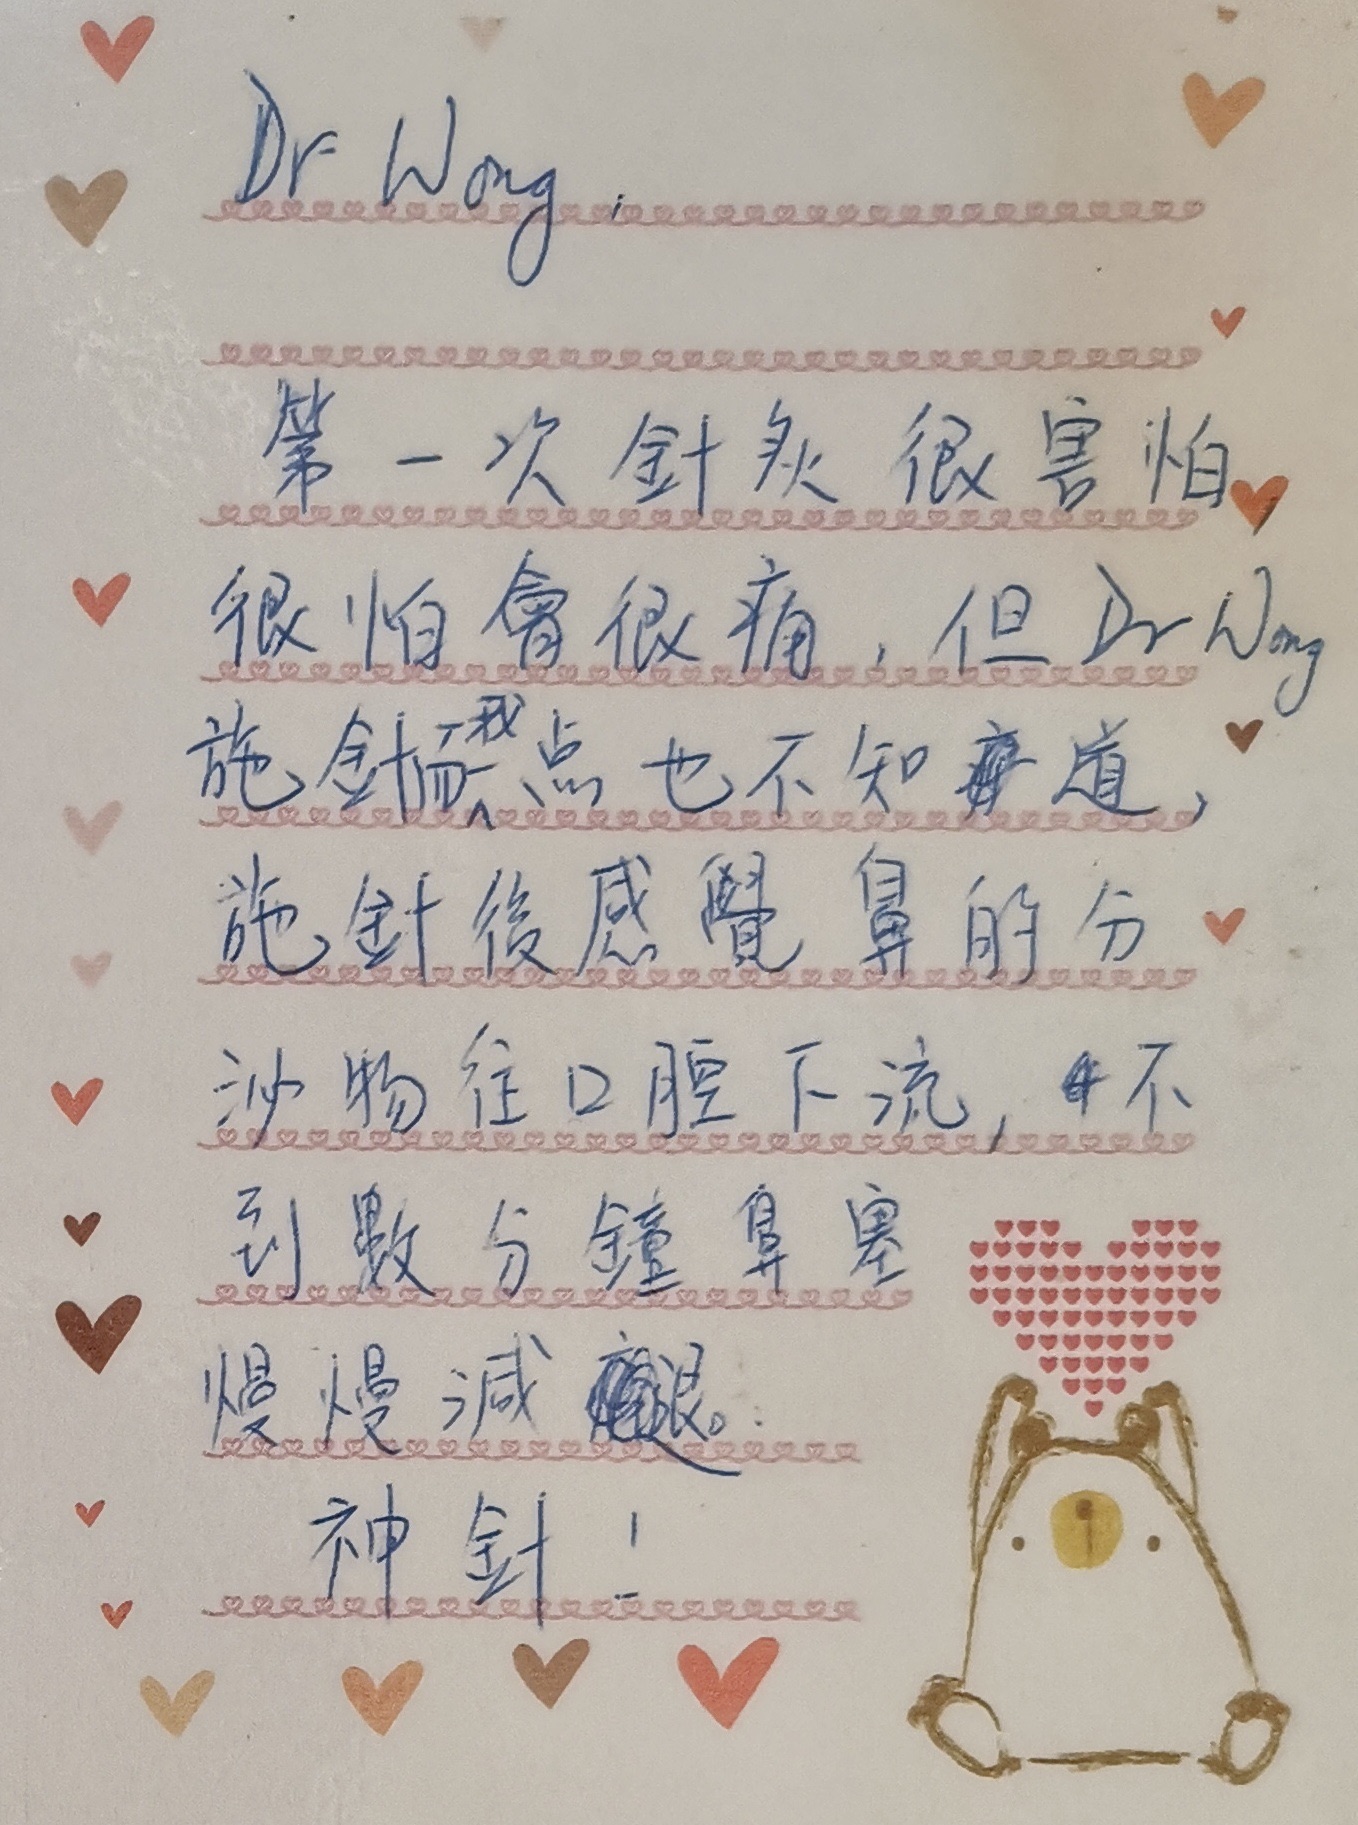 Dr Wong,
第一次針灸很害怕
很怕會很痛，但Dr Wong
施針而我一点也不知道，
施針後感覺鼻的分
泌物往口腔下流，不
到數分鐘鼻塞
慢慢減退。
神針！